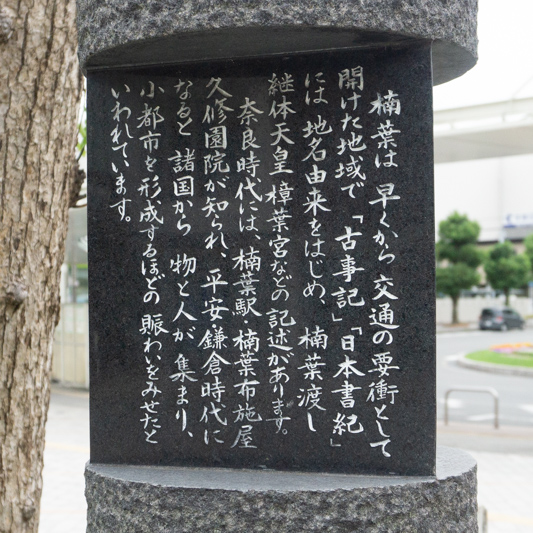 楠葉は 早くから 交通の要衝として
開けた地域で 「古事記」「日本書紀」
には 地名由来をはじめ、 楠葉渡し
継体天皇 樟葉宮などの 記述があります。
奈良時代には、楠葉駅・楠葉布施屋
久修園院が知られ、平安・鎌倉時代に
なると 諸国から 物と人が 集まり、
小都市を 形成するほどの 賑わいをみせたと
いわれています。